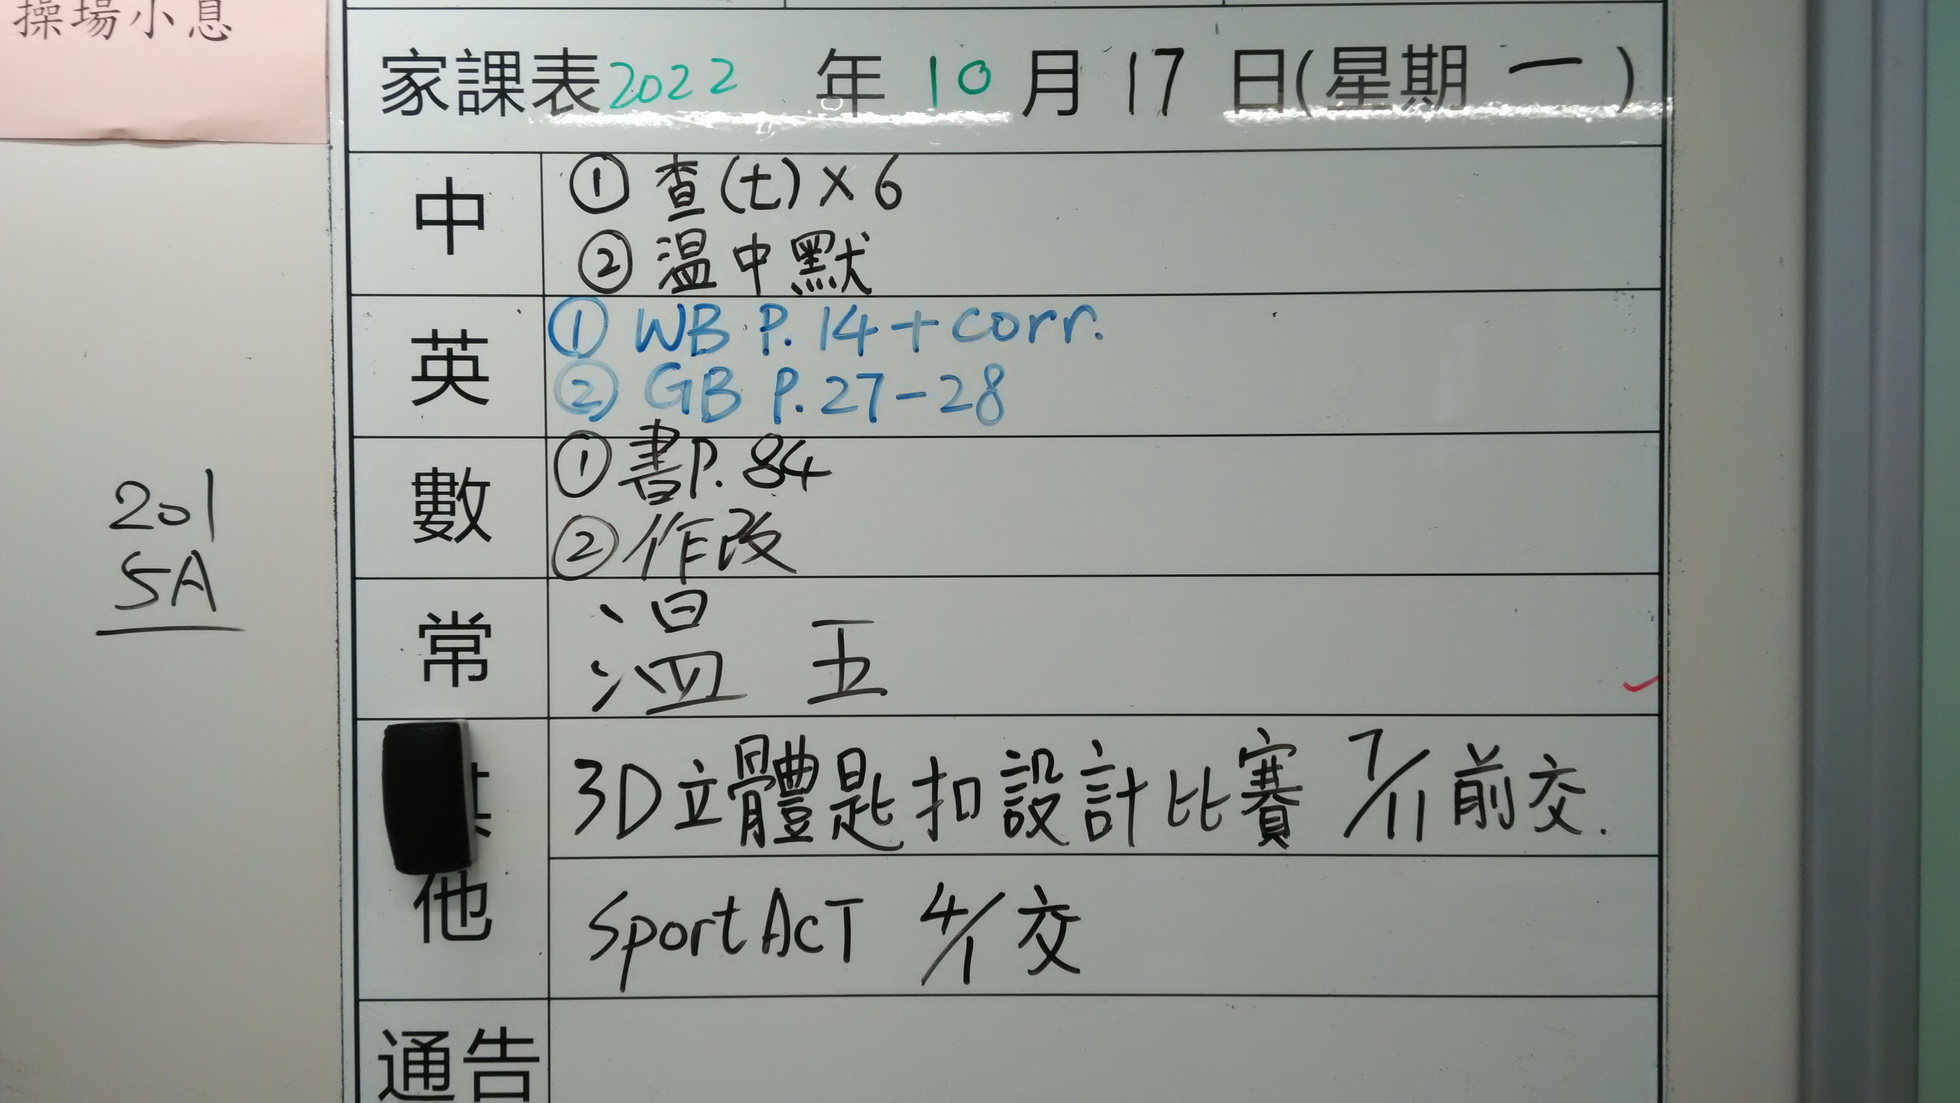 操場小息
家課表2022 年 10 月 17 日(星期 一 )
中
① 查(七)×6
② 温中默
英
① WB P. 14 + corr.
② GB P. 27-28
數
① 書P. 84
② 作改
常
温 五
201
5A
他
3D立體匙扣設計比賽 7/11前交.
SportAcT 4/1 交
通告